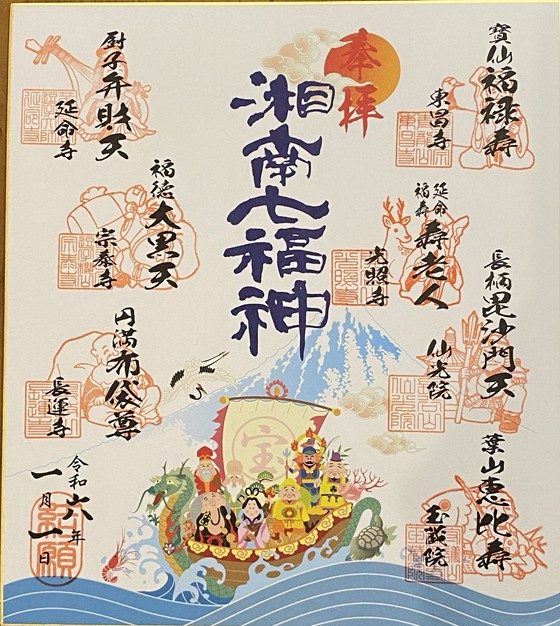 奉拝
湘南七福神
寶仙
福禄壽
東昌寺
延命
福壽
壽老人
光照寺
長柄
毘沙門天
仙光院
葉山
恵比寿
玉蔵院
厨子
弁財天
延命寺
福徳
大黒天
宗泰寺
円満
布袋尊
長運寺
宝
令和六年
一月一日
祈願